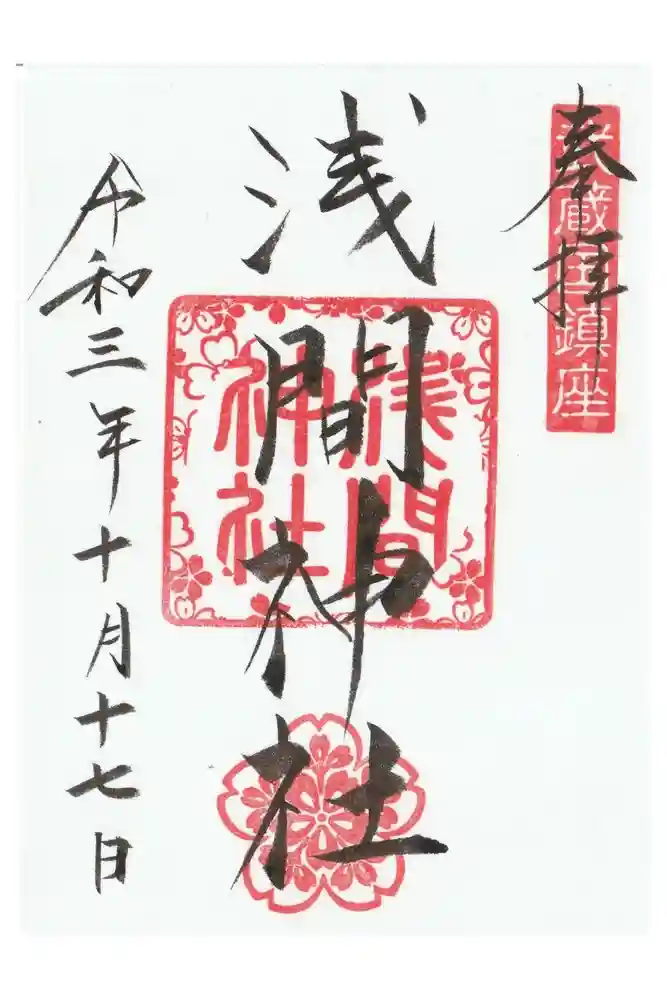 奉拝
武蔵国鎮座
浅間神社
浅間
神社
令和三年十月十七日